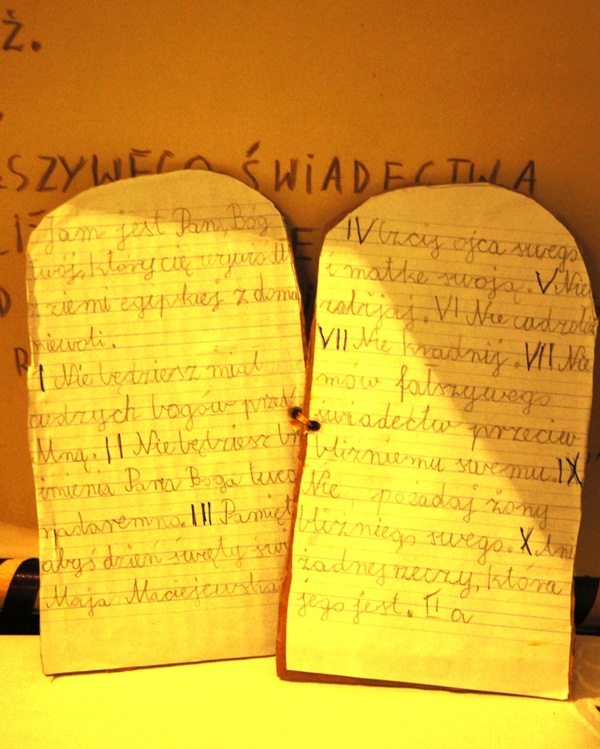 Ż.
SZYWEGO ŚWIADECTWA
Jam jest Pan, Bóg
twój, który cię wywiódł
z ziemi egipskiej z domu
niewoli.
I Nie będziesz miał
cudzych bogów przed
Mną. II Nie będziesz
imienia Pana Boga
nadaremno. III Pamięt
abyś dzień święty
Maja Maciejewska
IV Czcij ojca swego
i matkę swoją. V Nie
zabijaj. VI Nie cudzołóż
VII Nie kradnij. VII Nie
mów fałszywego
świadectw przeciw
bliźniemu swemu. IX
Nie pożądaj żony
bliźniego swego. X Ani
żadnej rzeczy, która
jego jest. II a